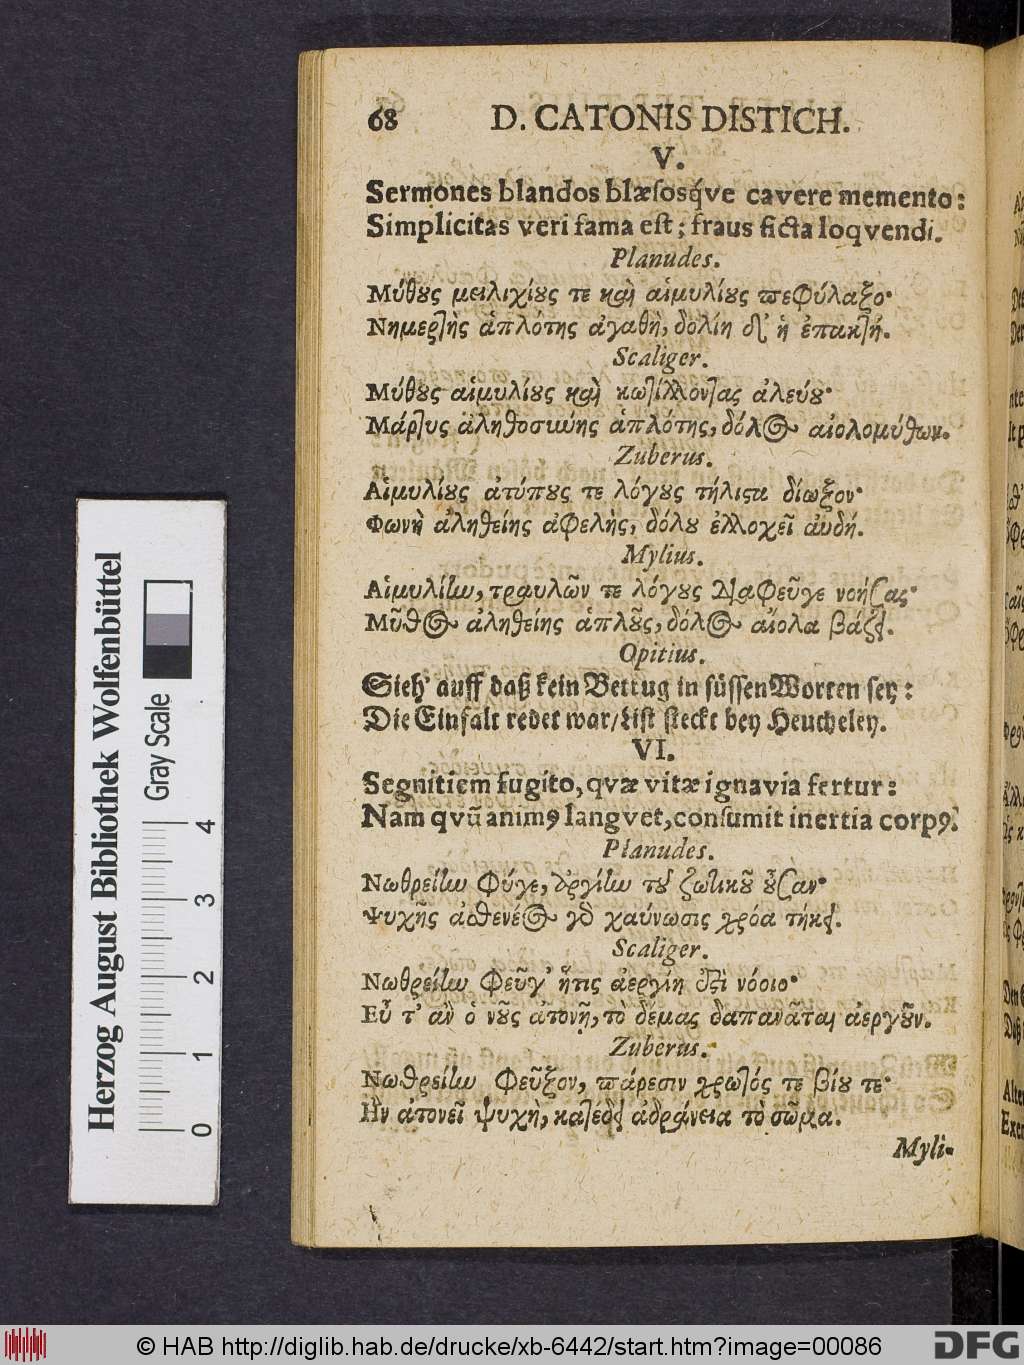 68 D. CATONIS DISTICH.
V.
Sermones blandos blæſosq́ve cavere memento:
Simplicitas veri fama eſt; fraus ficta loqvendi.
Planudes.
Μύθους μειλιχίους τε καὶ αἱμυλίους πεφύλαξο·
Νημερτὴς ἁπλότης ἀγαθὴ, δολίη δ' ἡ ἐπακτή.
Scaliger.
Μύθους αἱμυλίους καὶ κωτίλλοντας ἀλεύου·
Μάρτυς ἀληθοσύνης ἁπλότης, δόλος αἰολομύθων.
Zuberus.
Αἱμυλίους ἀτύπους τε λόγους τήλιστα δίωξον·
Φωνὴ ἀληθείης ἀφελὴς, δόλου ἐλλοχεῖ αὐδή.
Mylius.
Αἱμυλίων, τραυλῶν τε λόγους διαφεῦγε νοήσας·
Μῦθος ἀληθείης ἁπλοῦς, δόλος αἰόλα βάζει.
Opitius.
Sieh' auff daß kein Betrug in ſüſſen Worten ſey:
Die Einfalt redet war/Liſt ſteckt bey Heucheley.
VI.
Segnitiem fugito, qvæ vitæ ignavia fertur:
Nam qvũ animꝰ langvet, conſumit inertia corpꝰ.
Planudes.
Νωθρείην φύγε, ἀργίην τοῦ ζωτικοῦ οὖσαν·
Ψυχῆς ἀσθενέος γὸ χαύνωσις χρόα τήκει.
Scaliger.
Νωθρείην φεῦγ' ἥτις ἀεργίη ἐστὶ νόοιο·
Εὖ τ' ἂν ὁ νοῦς ἀτονῇ, τὸ δέμας δαπανᾶται ἀεργοῦν.
Zuberus.
Νωθρείην φεῦξον, πάρεσιν χρωτός τε βίου τε·
Ἢν ἀτονεῖ ψυχὴ, κατέδει ἀδράνεια τὸ σῶμα.
Myli-
Herzog August Bibliothek Wolfenbüttel
Gray Scale
0 1 2 3 4
© HAB http://diglib.hab.de/drucke/xb-6442/start.htm?image=00086
DFG